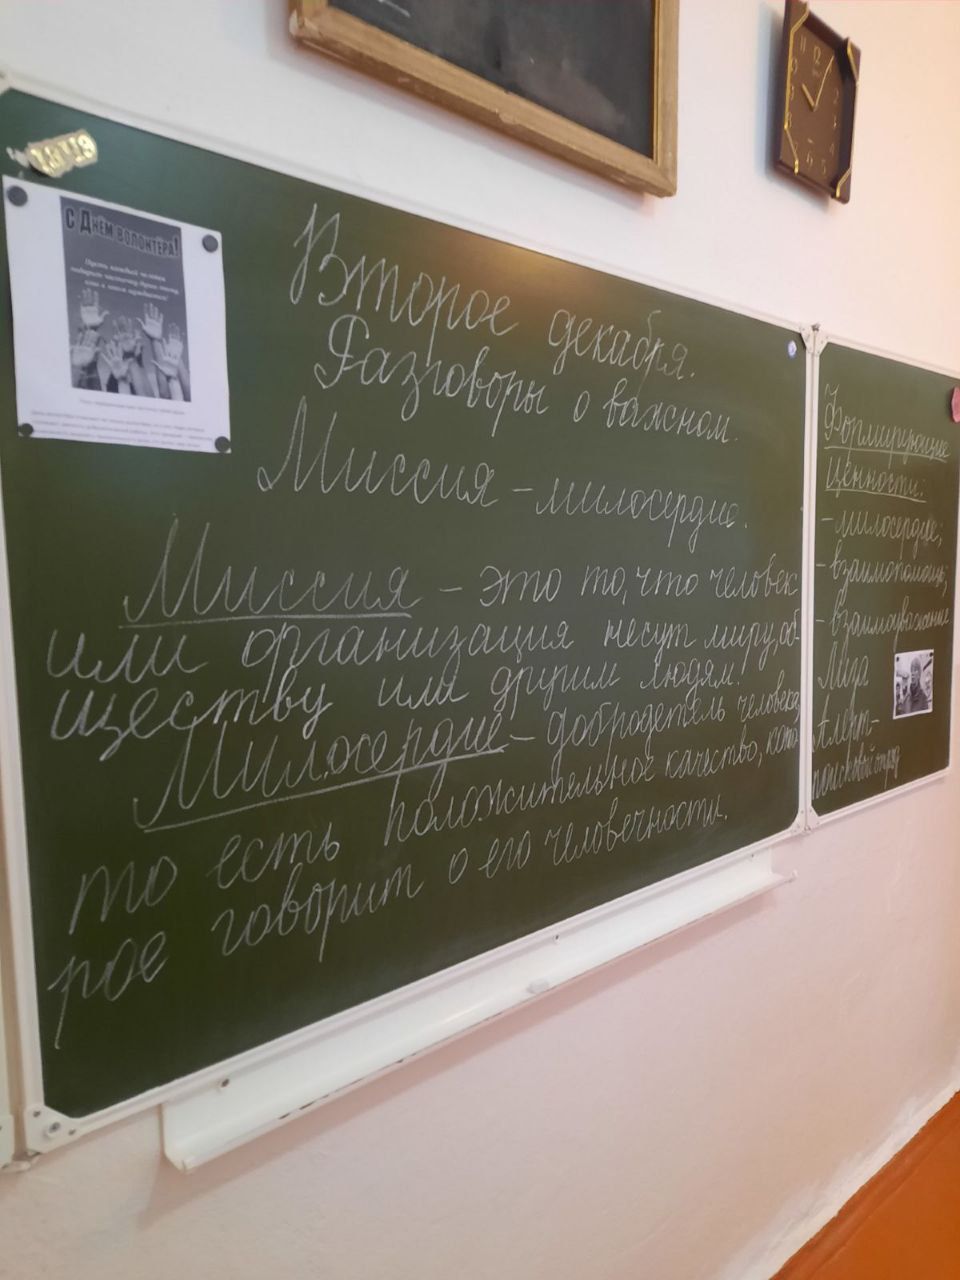 С Днём волонтёра!
Пусть каждый человек
Второе декабря.
Разговоры о важном.
Миссия – милосердие.
Миссия – это то, что человек
или организация несут миру, об-
ществу или другим людям.
Милосердие – добродетель человека,
то есть положительное качество, кото-
рое говорит о его человечности.
Формирующие
ценности:
- милосердие;
- взаимопомощь;
- взаимоуважение
Лиза
Алерт-
поисковый отряд
12
6
5